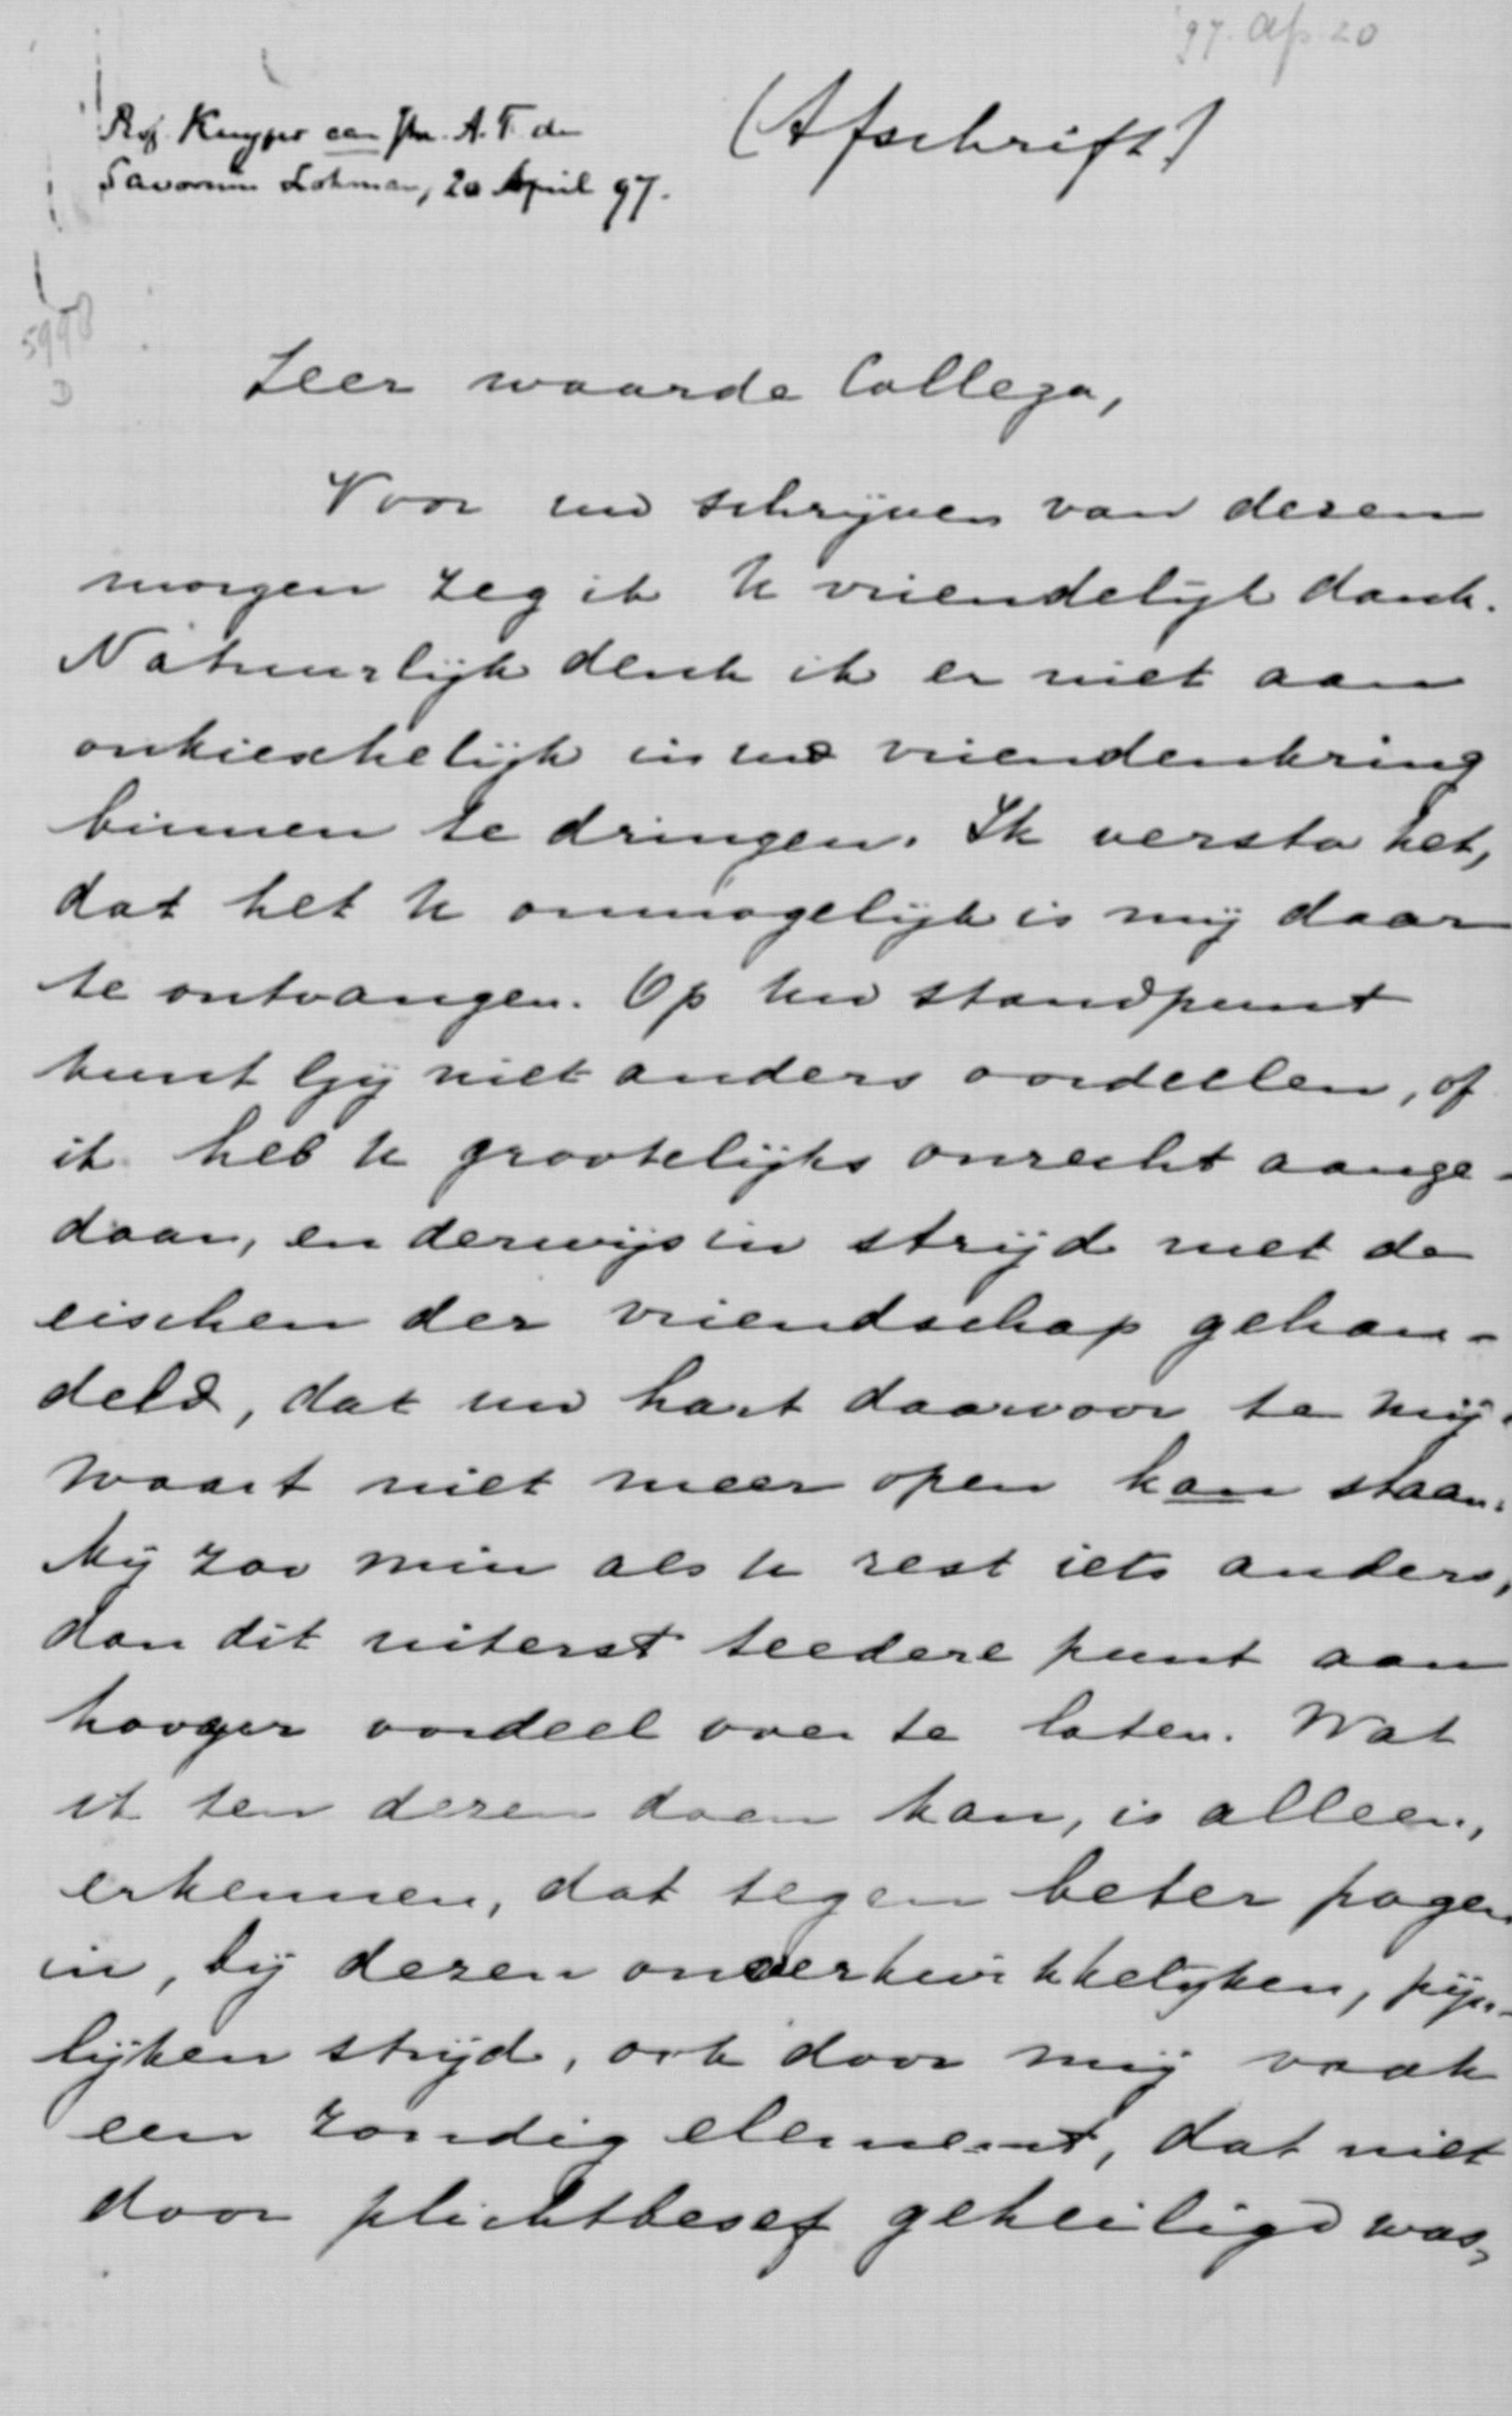 97. Ap. 20
Prof. Kuyper aan Jhr. A. F. de
Savornin Lohman, 20 April 97.
(Afschrift)
5998
D
Zeer waarde Collega,
Voor uw schrijven van dezen
morgen zeg ik U vriendelijk dank.
Natuurlijk denk ik er niet aan
onkieschelijk in uw vriendenkring
binnen te dringen. Ik versta het,
dat het U onmogelijk is mij daar
te ontvangen. Op Uw standpunt
kunt Gij niet anders oordeelen, of
ik heb U grootelijks onrecht aange-
daan, en derwijs in strijd met de
eischen der vriendschap gehan-
deld, dat uw hart daarvoor te mij-
waart niet meer open kan staan.
Mij zoo min als U rest iets anders,
dan dit uiterst teedere punt aan
hooger oordeel over te laten. Wat
ik ten dezen doen kan, is alleen,
erkennen, dat tegen beter pogen
in, bij dezen onverkwikkelijken, pijn-
lijken strijd, ook door mij vaak
een zondig element, dat niet
door plichtbesef geheiligd was,